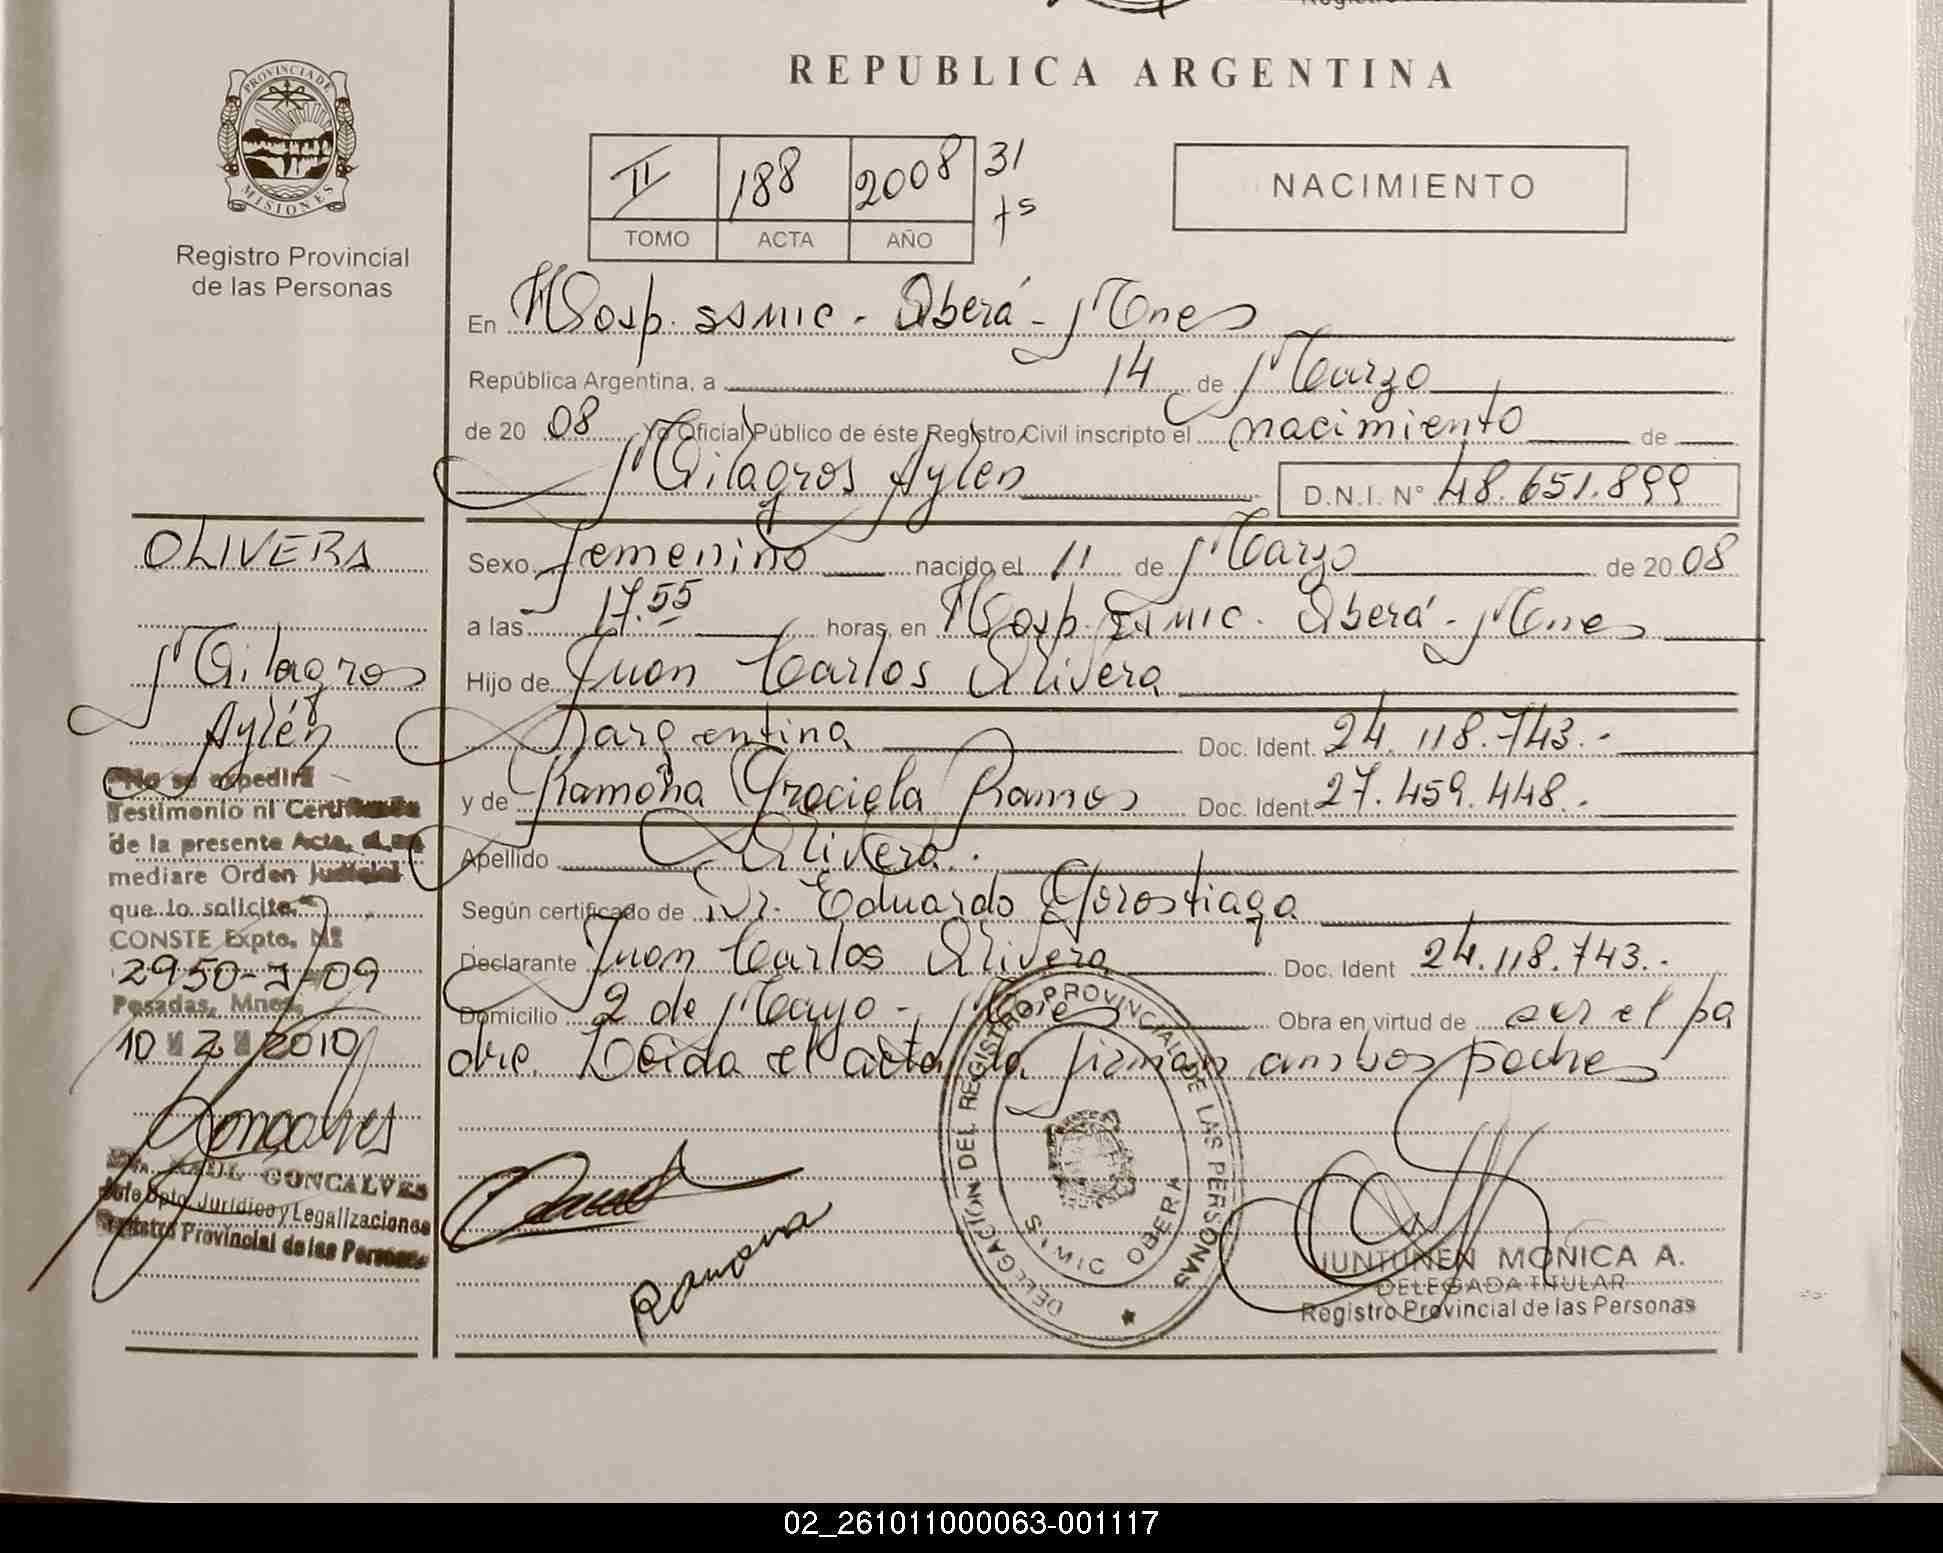 REPUBLICA ARGENTINA
PROVINCIA DE
MISIONES
Registro Provincial
de las Personas
II 188 2008 31
TOMO ACTA AÑO
NACIMIENTO
En Hosp. SAMIC - Oberá - Mnes
República Argentina, a 14 de Marzo
de 20 08 Yo Oficial Público de éste Registro Civil inscripto el nacimiento de
Milagros Aylen D.N.I. N° 48.651.899
Sexo femenino nacido el 11 de Marzo de 20 08
a las 17.55 horas, en Hosp. SAMIC - Oberá - Mnes
Hijo de Juan Carlos Olivera
argentina Doc. Ident. 24.118.743.-
y de Ramona Graciela Ramos Doc. Ident. 27.459.448.-
Apellido Olivera.-
Según certificado de Dr. Eduardo Gorostiaga
Declarante Juan Carlos Olivera Doc. Ident 24.118.743.-
Domicilio 2 de Mayo - Mnes Obra en virtud de ser el pa
dre. Leida el acta la firman ambos padres
OLIVERA
Milagros
Aylén
"No se expedirá
Testimonio ni Certificado
de la presente Acta, si no
mediare Orden Judicial
que lo solicite."
CONSTE Expte. Nº
2950-J-09
Posadas, Mnes,
10 2 2010
Goncalves
GONCALVES
Jefe Dpto. Jurídico y Legalizaciones
Registro Provincial de las Personas
Ramona
DELEGACIÓN DEL REGISTRO PROVINCIAL DE LAS PERSONAS
SAMIC OBERA
JUNTUNEN MONICA A.
DELEGADA TITULAR
Registro Provincial de las Personas
02_261011000063-001117